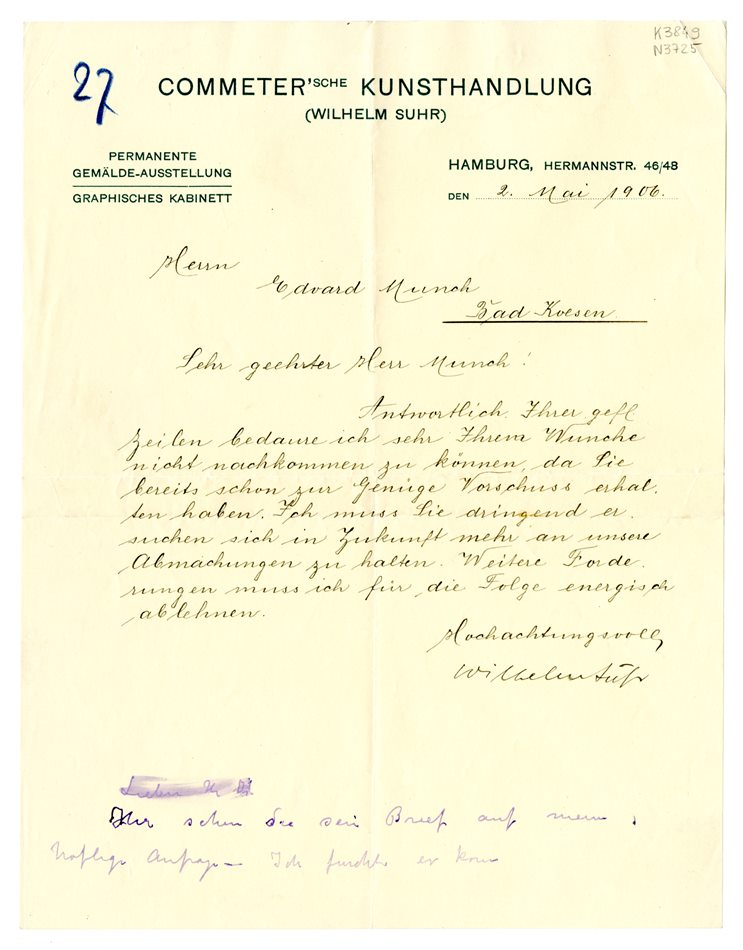 K3849
N3725
27
COMMETER'SCHE KUNSTHANDLUNG
(WILHELM SUHR)
PERMANENTE
GEMÄLDE-AUSSTELLUNG
GRAPHISCHES KABINETT
HAMBURG, HERMANNSTR. 46/48
DEN 2. Mai 1906.
Herrn
Edvard Munch
Bad Koesen.
Sehr geehrter Herr Munch!
Antwortlich Ihrer gefl.
Zeilen bedaure ich sehr Ihrem Wunche
nicht nachkommen zu können, da Sie
bereits schon zur Genüge Vorschuss erhal-
ten haben. Ich muss Sie dringend er-
suchen sich in Zukunft mehr an unsere
Abmachungen zu halten. Weitere Forde-
rungen muss ich für die Folge energisch
ablehnen.
Hochachtungsvoll
Wilhelm Suhr
Lieber Hr
Hier sehen Sie sein Brief auf mein
höflige Anfrage – Ich furchte er kan